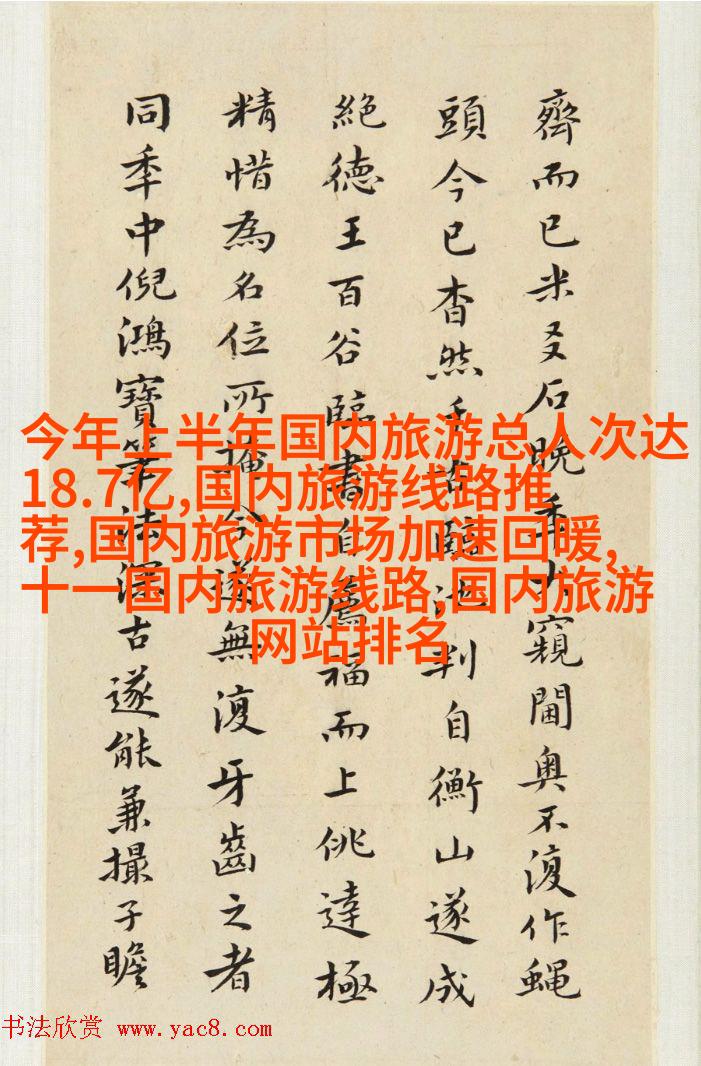 齊而已米友石晚秊窺閫奥不復作蝿
頭今已杳然臨池判自衡山遂成
絶德王百谷臨書自薦福而上佻達極
精惜為名位所掩今遂無復牙齒之者
同秊中倪鴻寶筆法深古遂能兼撮子瞻
今年上半年国内旅游总人次达
18.7亿,国内旅游线路推
荐,国内旅游市场加速回暖,
十一国内旅游线路,国内旅游
网站排名
书法欣赏 www.yac8.com